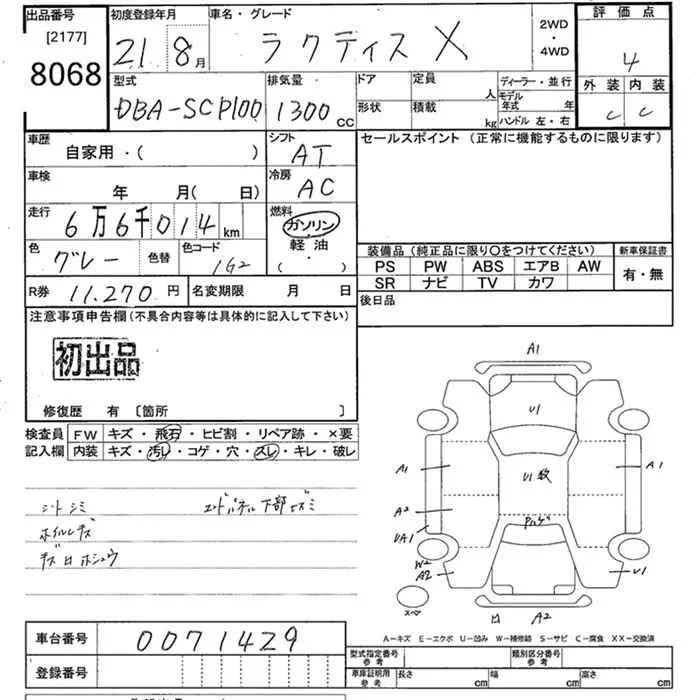 出品番号
[2177]
8068
初度登録年月
21 8月
車名・グレード
ラクティス X
2WD
・
4WD
評価点
4
外装 内装
C C
型式
DBA-SCP100
排気量
1300 CC
ドア
定員
人
形状
積載
kg
ディーラー・並行
モデル年式 年
ハンドル 左・右
車歴
自家用・( )
シフト
AT
車検
年 月( 日)
冷房
AC
走行
6万6千014 km
燃料
ガソリン
軽油
( ・ )
色
グレー
色替
色コード
1G2
R券 11.270 円
名変期限 月 日
セールスポイント (正常に機能するものに限ります)
装備品 (純正品に限り〇をつけてください)
PS PW ABS エアB AW
SR ナビ TV カワ
新車保証書
有・無
後日品
注意事項申告欄 (不具合内容等は具体的に記入して下さい)
初出品
修復歴 有 〔箇所 〕
検査員記入欄
FW キズ・飛石・ヒビ割・リペア跡・×要
内装 キズ・汚れ・コゲ・穴・スレ・キレ・破レ
シートシミ
エンドパネル下部キズミ
ホイルキズ
キズ ホシュウ
A1
U1
A1
U1
A1
A2
UA1
W2
A2
U1
スペア
凹 A2
A-キズ E-エクボ U-凹み W-補修跡 S-サビ C-腐食 XX-交換済
車台番号 0071429
登録番号
型式指定番号
参考
類別区分番号
参考
車庫証明用
参考
長さ cm
幅 cm
高さ cm